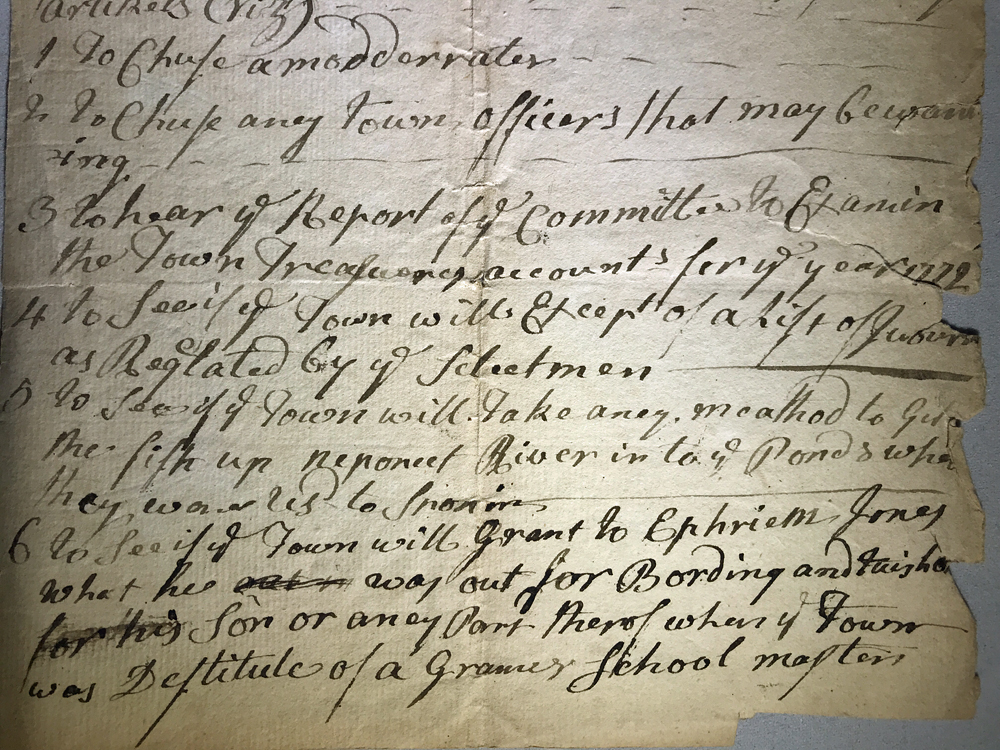 artikels (viz)
1 to Chuse a modderrater
2 to Chuse aney Town officers that may be want
ing
3 to hear ye Report of ye Committee to Examin
the Town Treasurers accounts for ye year 1772
4 to See if ye Town will Except of a List of Jurors
as Reglated by ye Selectmen
5 to See if ye Town will Take aney meathod to Gitt
the fish up neponcet River in to ye Ponds whe
they was us to
6 to See if ye Town will Grant to Ephriem Jones
what he was out for Bording and
for his Son or aney Part therof when ye Town
was Destitute of a Gramer School master